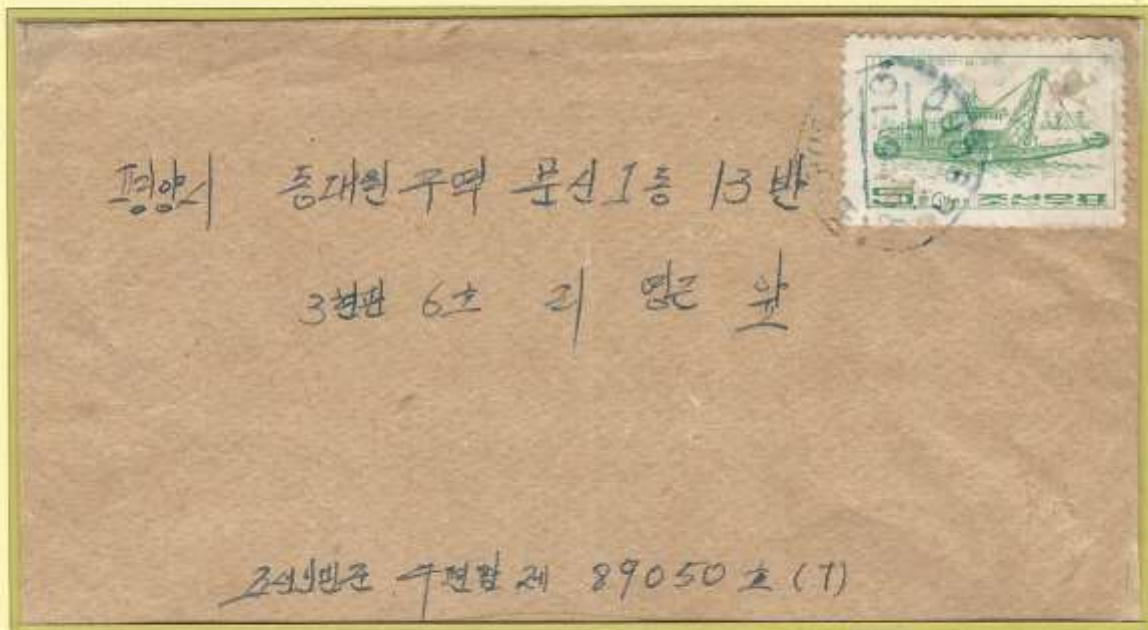 조선우표
평양시 동대원구역 문신1동 13반
3현관 6호 리 영근 앞
조선인민군 우편함 제 89050호 (7)